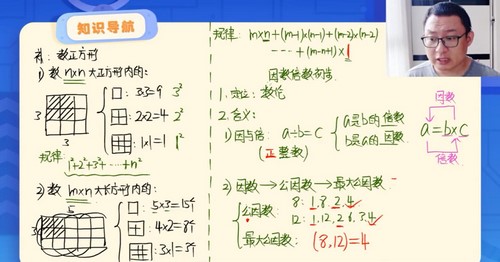 知识导航
一、数正方形
1) 数 n×n 大正方形内的:
3
3
3×3=9 3²
2×2=4 2²
1×1=1 1²
规律: 1²+2²+3²+……+n²
2) 数 m×n 大长方形内的:
5
3
5×3=15个
4×2=8个
3×1=3个
规律: m×n+(m-1)×(n-1)+(m-2)×(n-2)
……+(m-n+1)×1
因数倍数初步
1. 定位: 数论
2. 含义:
1) 因与倍: a÷b=c
(正整数)
a是b的倍数
b是a的因数
因数
a=b×c
倍数
2) 因数→公因数→最大公因数
公因数:
8: 1.8.2.4
12: 1.12.2.6.3.4
最大公因数: (8,12)=4